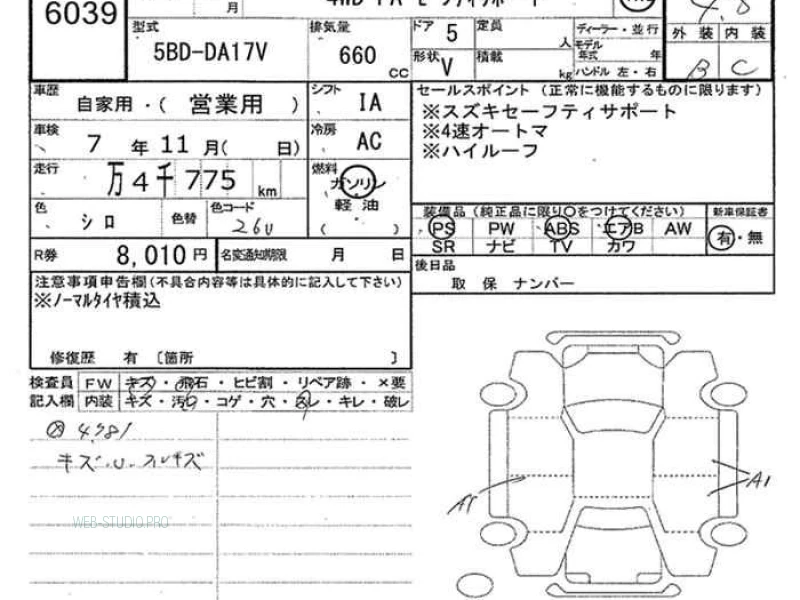 6039
月
型式
5BD-DA17V
排気量
660
cc
ドア 5
定員
人
ディーラー・並行
モデル
年式 年
ハンドル 左・右
形状 V
積載
kg
外装 内装
B C
車歴
自家用・( 営業用 )
シフト
IA
車検
7 年 11 月( 日)
冷房
AC
走行
万4千775 km
燃料
ガソリン
軽油
( )
色
シロ
色替
色コード
26U
R券
8,010 円
名変通知期限
月 日
セールスポイント (正常に機能するものに限ります)
※スズキセーフティサポート
※4速オートマ
※ハイルーフ
装備品 (純正品に限り○をつけてください)
新車保証書
PS PW ABS エアB AW
SR ナビ TV カワ
有・無
後日品
取 保 ナンバー
注意事項申告欄(不具合内容等は具体的に記入して下さい)
※ノーマルタイヤ積込
修復歴 有 〔箇所 〕
検査員 FW キズ・飛石・ヒビ割・リペア跡・×要
記入欄 内装 キズ・汚レ・コゲ・穴・スレ・キレ・破レ
キズ・U・スレキズ
A1
A1
WEB-STUDIO.PRO